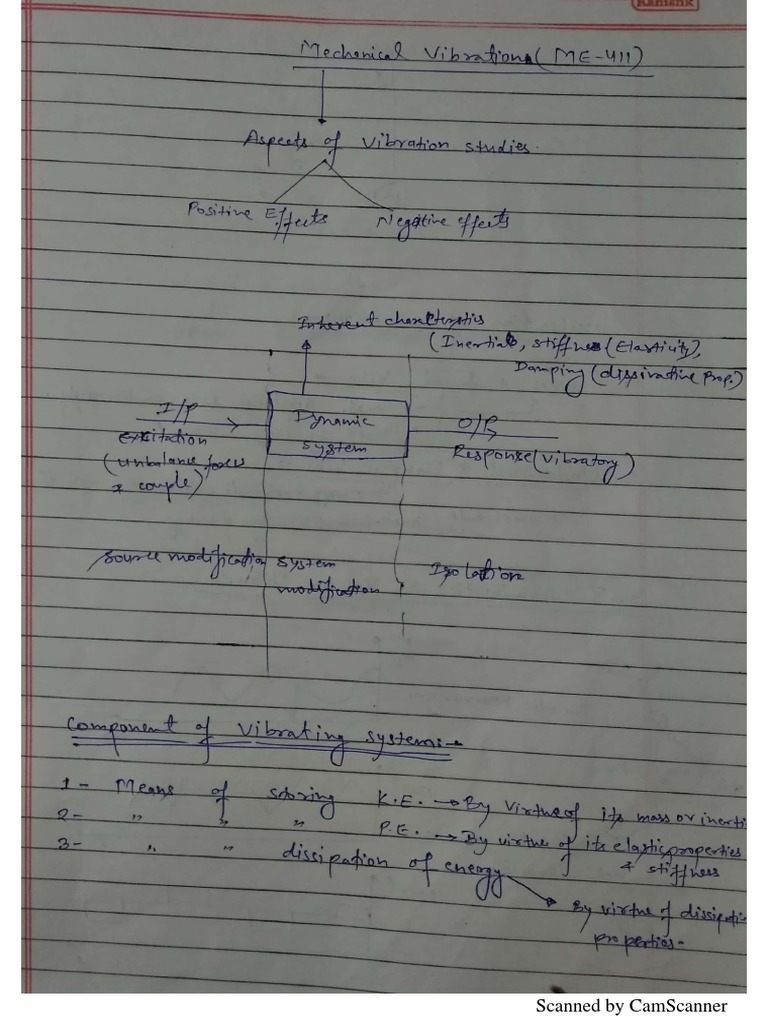 Kanishk
Mechanical Vibrations (ME-411)
Aspects of Vibration studies.
Positive Effects
Negative effects
Inherent
(Inertia, stiffness (Elasticity),
Damping (dissipative Prop.)
I/P
Dynamic
system
O/P
excitation
(unbalance forces
couple)
Response (Vibratory)
source modification
system
modification
Isolation
Component of Vibrating system:-
1- Means of storing K.E. → By Virtue of its mass or inerti
2- " " " P.E. → By virtue of its elastic properties
+ stiffness
3- " " dissipation of energy
By virtue of dissipati
properties-
Scanned by CamScanner